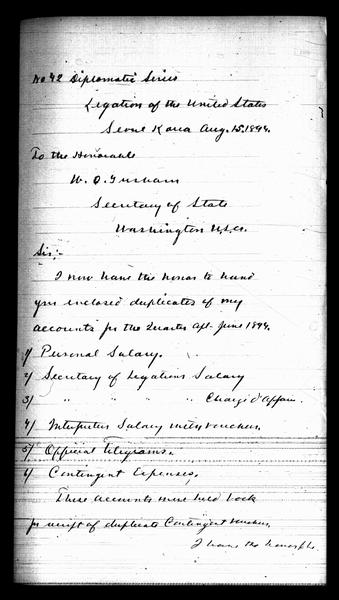 No 42 Diplomatic Series
Legation of the United States
Seoul Korea Aug. 15. 1894.
To the Honorable
W. Q. Gresham
Secretary of State
Washington U.S.A.
Sir:-
I now have the honor to hand
you enclosed duplicates of my
accounts for the Quarter Apl- June 1894.
1/ Personal Salary.
2/ Secretary of Legations Salary
3/ " " " " Chargé d'Affair.
4/ Interpreter Salary with vouchers.
5/ Official Telegrams.
6/ Contingent Expenses,
These accounts were held back
for receipt of duplicate Contingent vouchers.
I have the honor to be